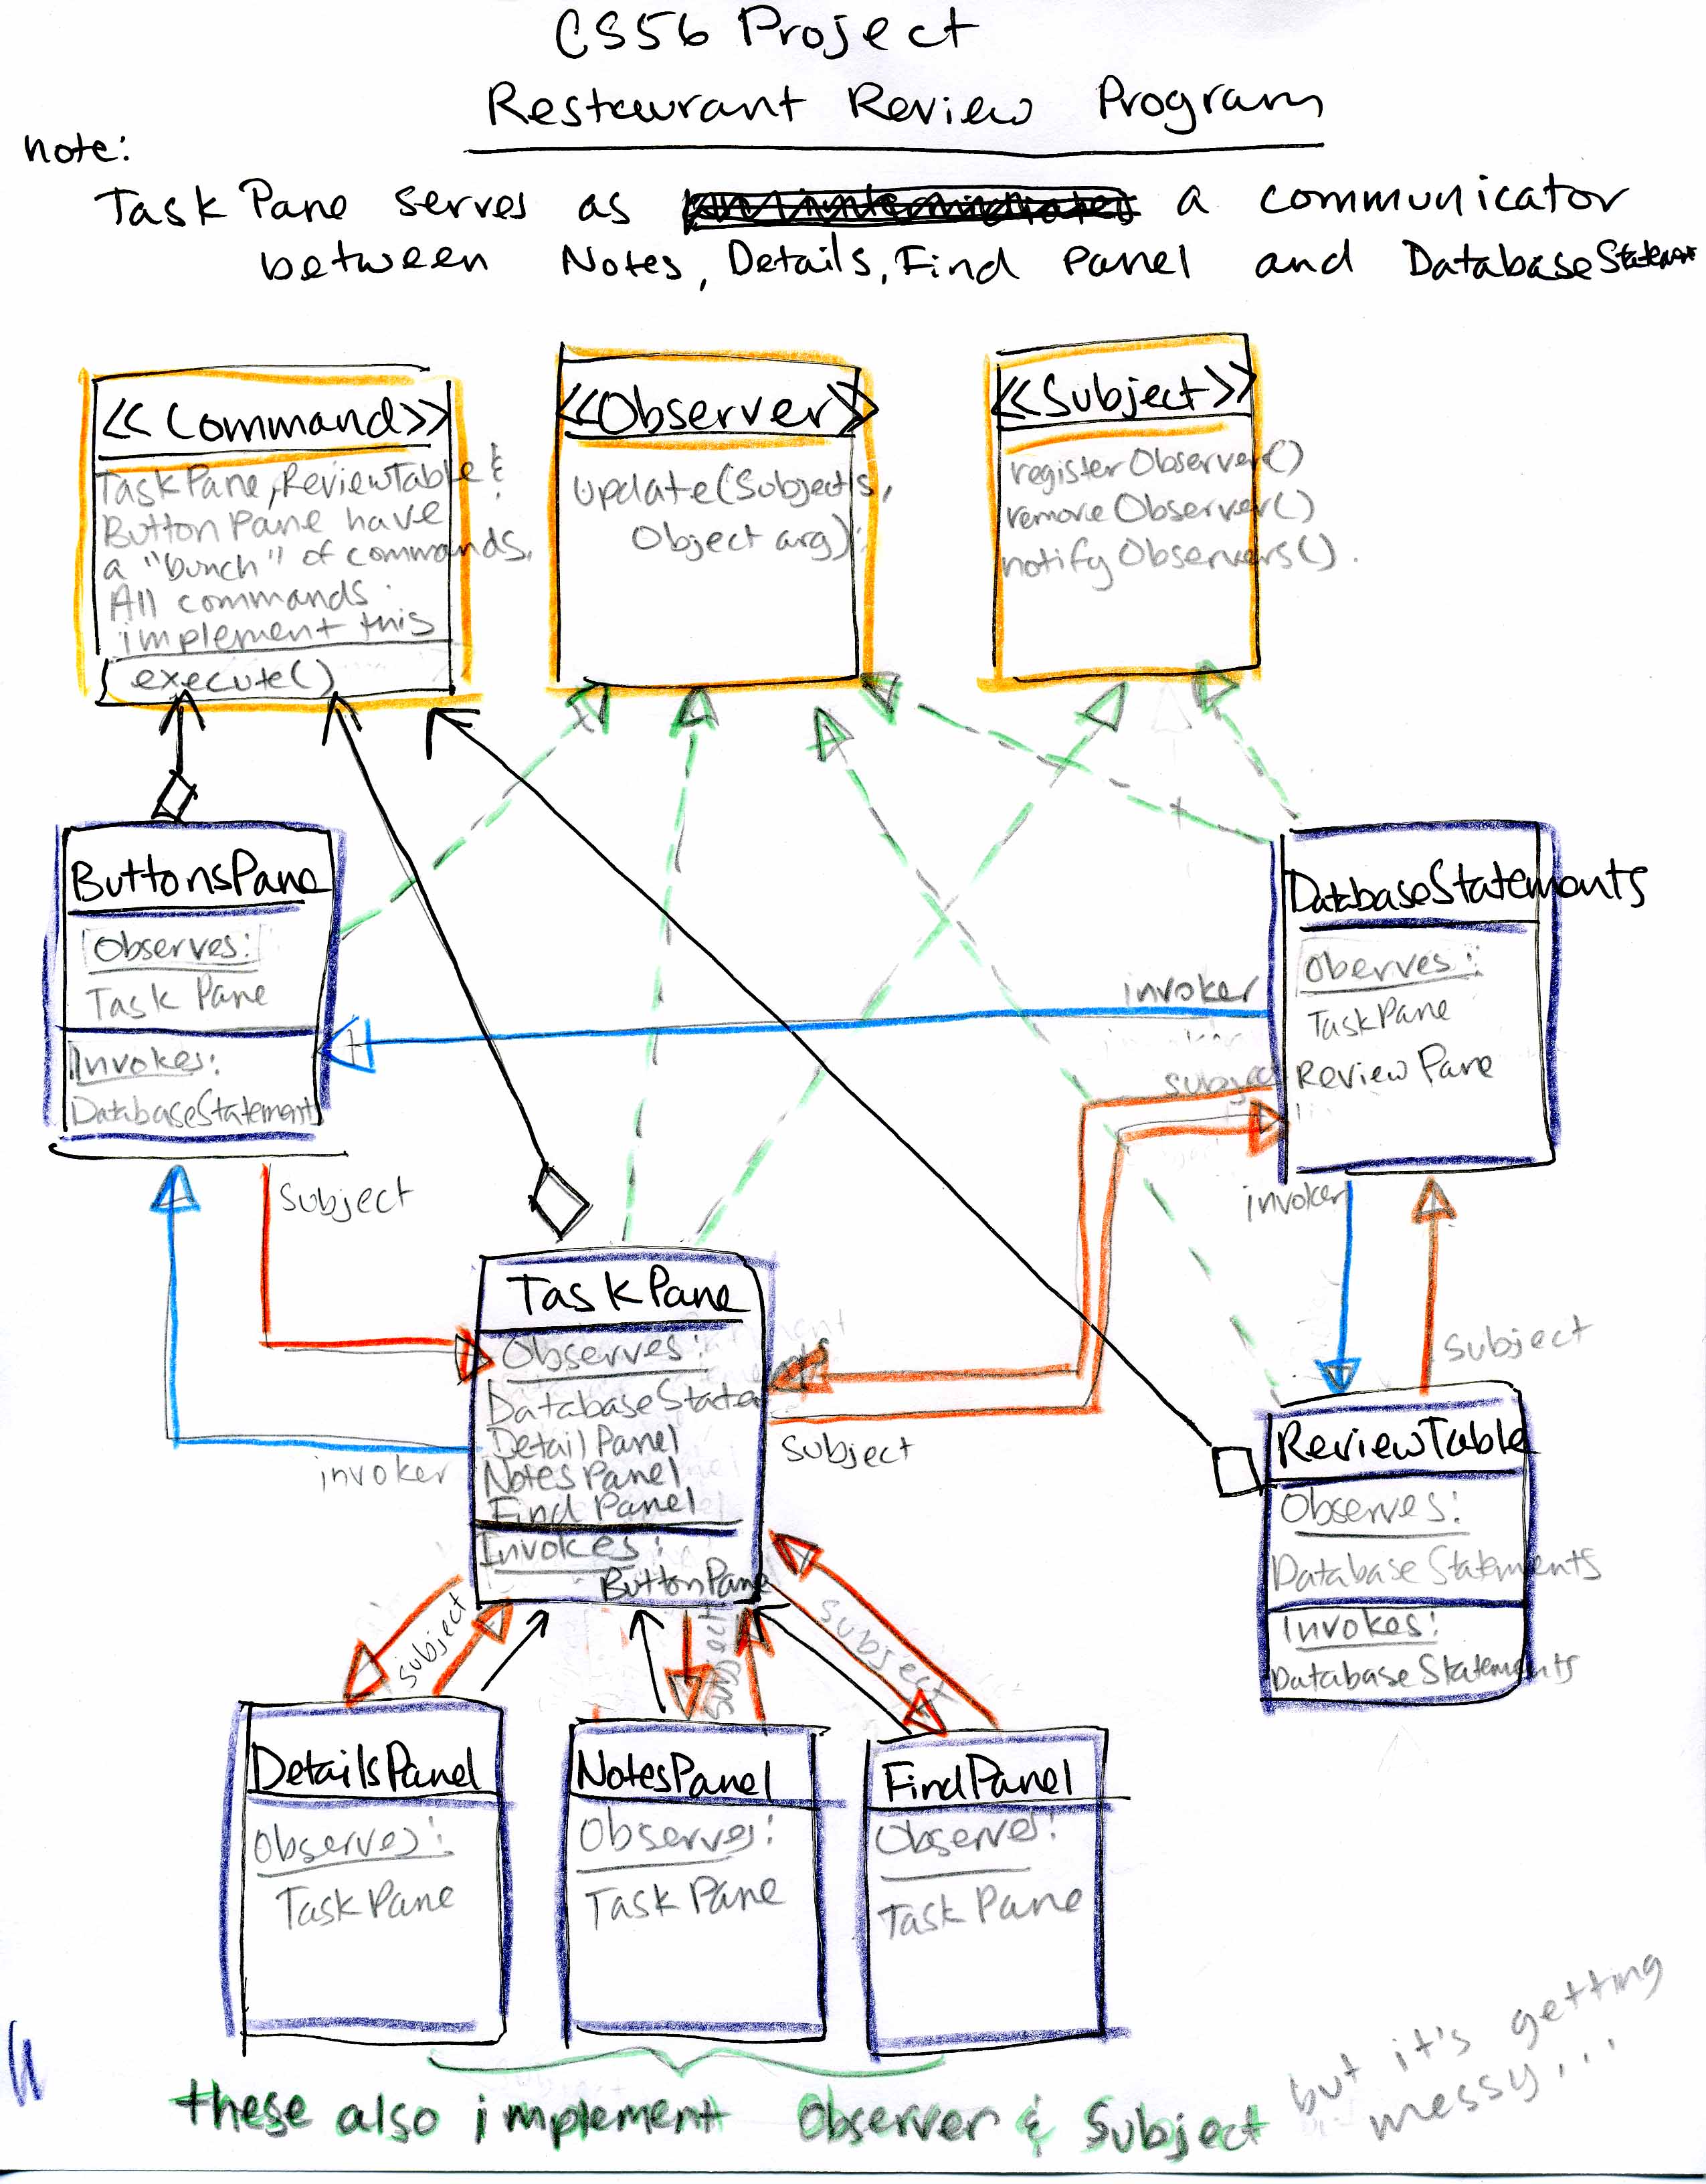 CS56 Project
Restaurant Review Program
note:
Task Pane serves as a communicator
between Notes, Details, Find Panel and Database
<<Command>>
TaskPane, ReviewTable &
Button Pane have
a "bunch" of commands.
All commands
implement this
execute()
<<Observer>>
update(Subject s,
Object arg);
<<Subject>>
registerObserver()
removeObserver()
notifyObservers().
ButtonsPane
Observes:
Task Pane
Invokes:
DatabaseStatements
DatabaseStatements
Oberves:
TaskPane
Review Pane
invoker
subject
subject
invoker
subject
invoker
subject
TaskPane
Observes:
DatabaseStatem
Detail Panel
Notes Panel
Find Panel
Invokes:
ButtonPane
ReviewTable
Observes:
Database Statements
Invokes:
Database Statements
subject
subject
subject
DetailsPanel
Observes:
Task Pane
NotesPanel
Observes:
Task Pane
FindPanel
Observes:
Task Pane
these also implement Observer & Subject
but it's getting
messy...